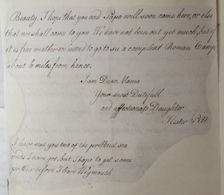 Beauty. I hope that you and Papa will soon come here, or else
that we shall come to you We have not been out yet much, but if
it is fine weather we intend to go to see a compleat Roman Camp
about 6 miles from hence.
I am Dear Mama
Your most Dutifull
and affectionate Daughter
Hester
I have sent you two of the prettiest sea
I have got, but I hope to get some
prettier before I leave Weymouth